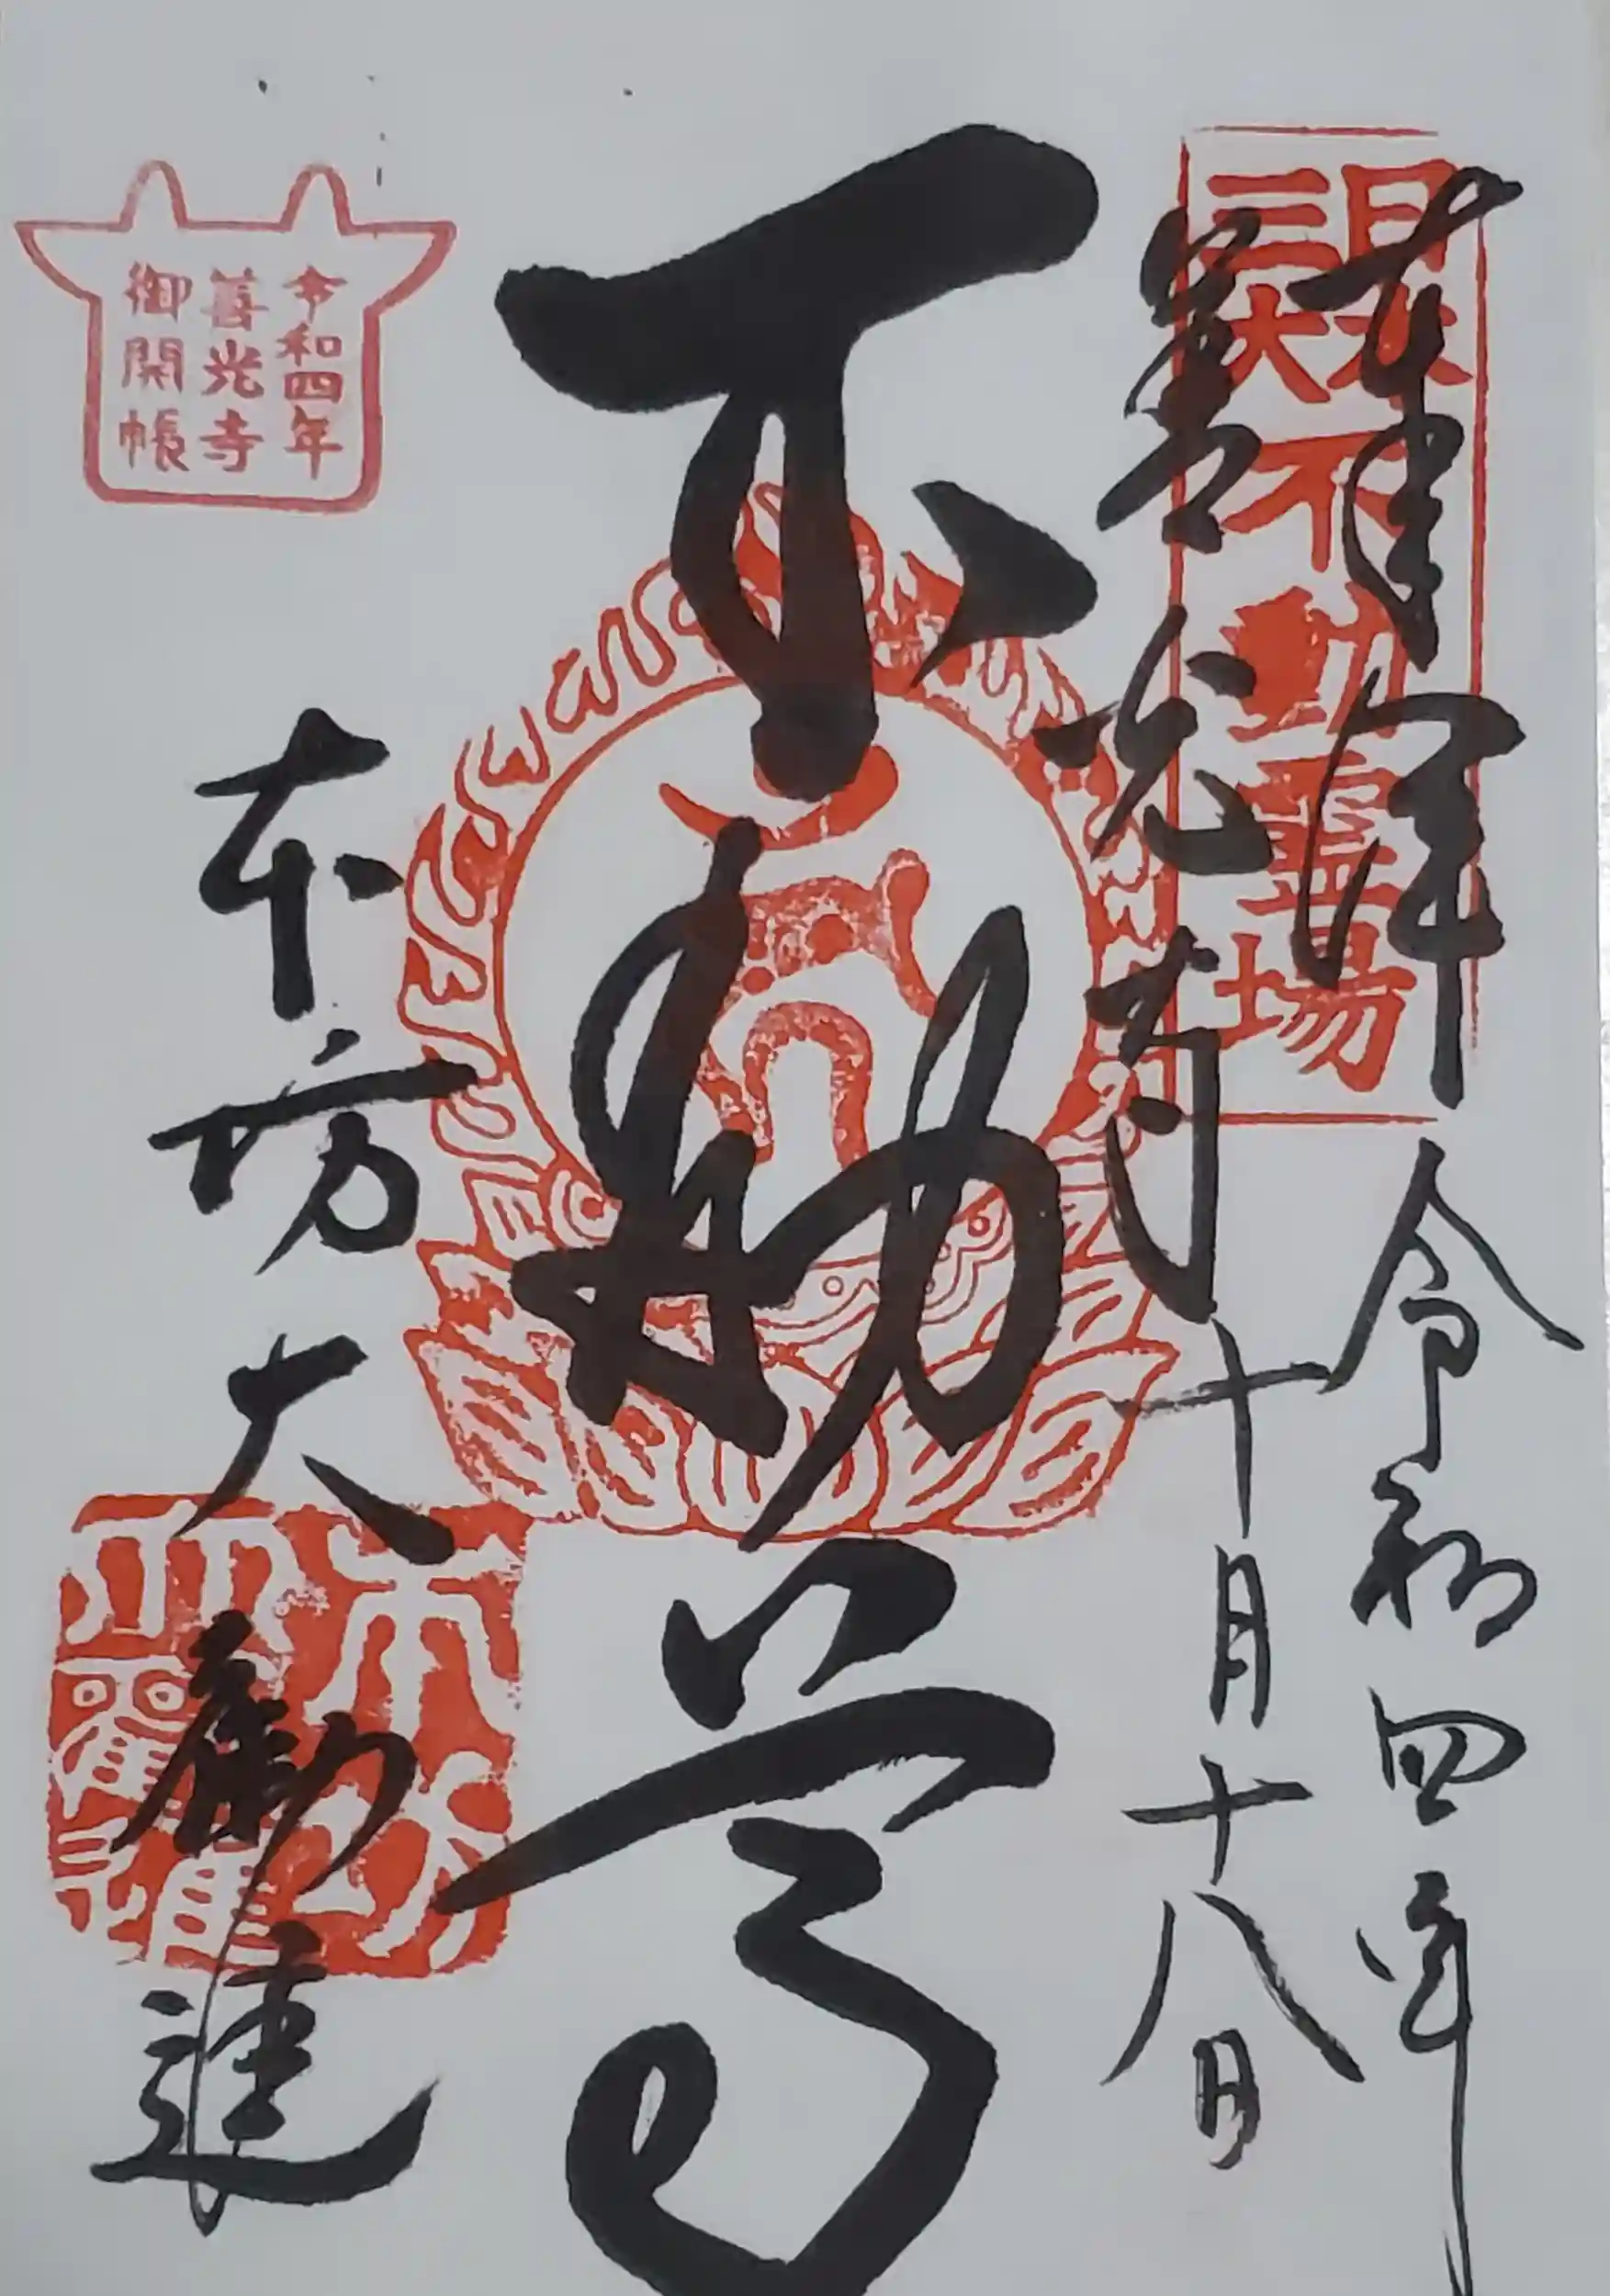 奉拝
令和四年
善光寺
十月十八日
日本
三大
不動霊場
不動尊
令和四年
善光寺
御開帳
本坊大勧進